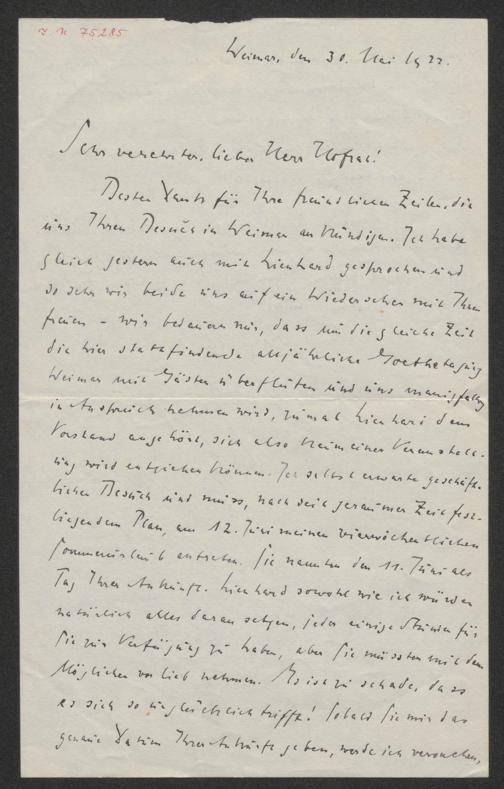 J N 75285
Weimar, den 30. Mai 1922.
Sehr verehrter, lieber Herr Hofrat!
Besten Dank für Ihre freundlichen Zeilen, die
uns Ihren Besuch in Weimar ankündigen. Ich habe
gleich gestern auch mit Lienhard gesprochen und
so sehr wir beide uns auf ein Wiedersehen mit Ihnen
freuen – wir bedauern nur, dass um die gleiche Zeit
die hier stattfindende alljährliche Goethetagung
Weimar mit Gästen überfluten und uns mannigfaltig
in Anspruch nehmen wird, zumal Lienhard dem
Vorstand angehört, sich also kaum einer Veranstalt-
ung wird entziehen können. Ich selbst erwarte geschäft-
lichen Besuch und muss, nach seit geraumer Zeit fest-
liegendem Plan, am 12. Juni meinen vierwöchentlichen
Sommerurlaub antreten. Sie nannten den 11. Juni als
Tag Ihrer Ankunft. Lienhard sowohl wie ich würden
natürlich alles daran setzen, jeder einige Stunden für
Sie zur Verfügung zu haben, aber Sie müssten mit dem
Möglichen vorlieb nehmen. Es ist zu schade, dass
es sich so unglücklich trifft! Sobald Sie mir das
genaue Datum Ihrer Ankunft geben, werde ich versuchen,